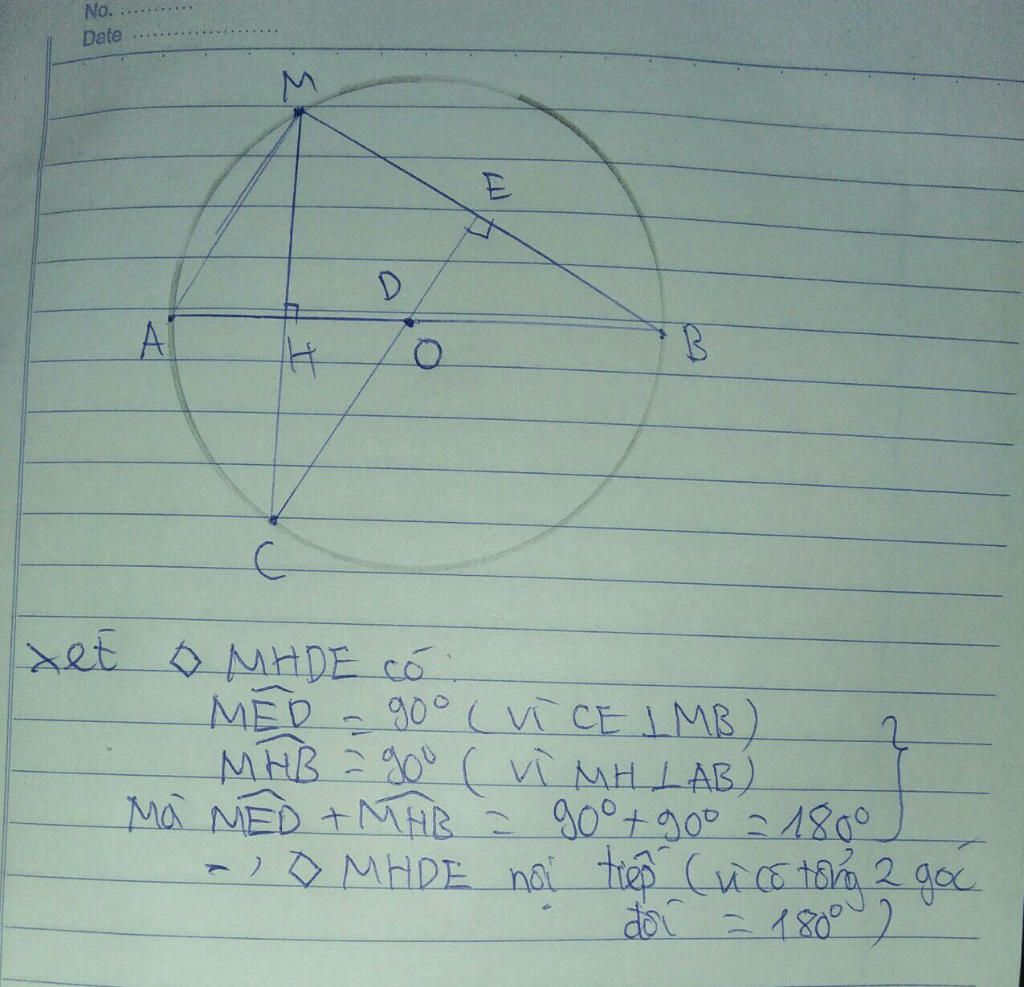 No. ............
Date ......................
M
E
D
A
H
O
B
C
xét ◇ MHDE có:
MÊD = 90° ( vì CE ⊥ MB )
MĤB = 90° ( vì MH ⊥ AB )
Mà MÊD + MĤB = 90° + 90° = 180°
=> ◇ MHDE nội tiếp ( vì có tổng 2 góc
đối = 180° )